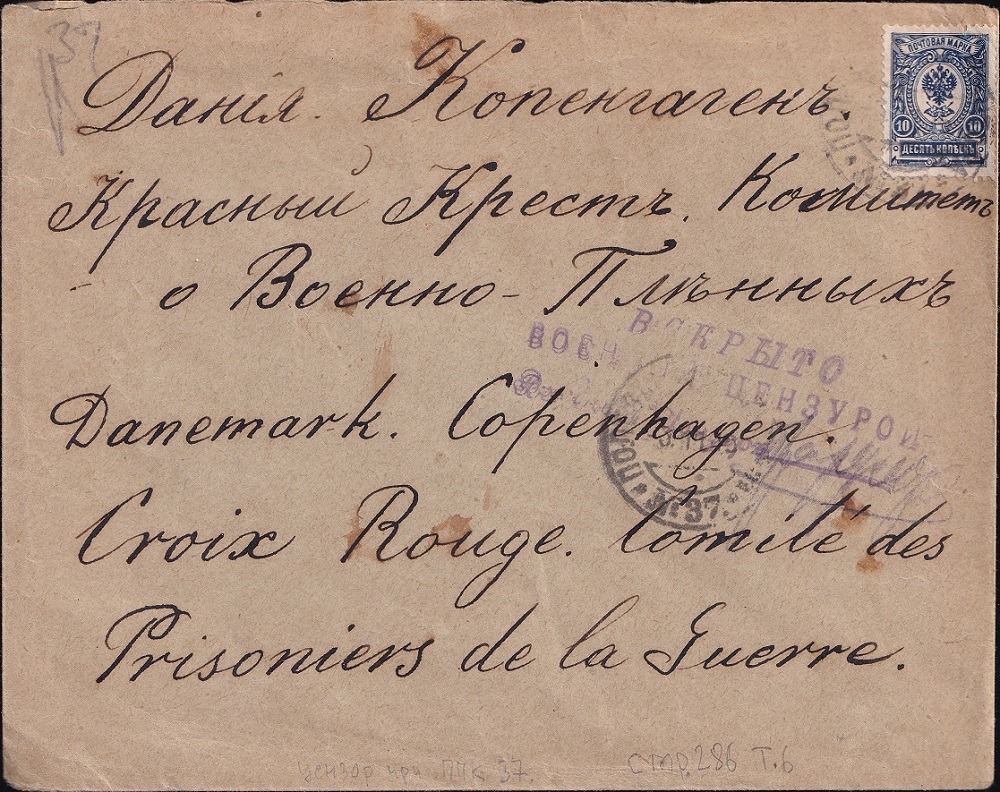 37
ПОЧТОВАЯ МАРКА
10 10
ДЕСЯТЬ КОПѢЕКЪ
Данія. Копенгагенъ.
Красный Крестъ. Комитетъ
о Военно-Плѣнныхъ
ВСКРЫТО
ВОЕН ЦЕНЗУРОЙ
Danemark. Copenhagen.
№ 37
Croix Rouge. Comité des
Prisoniers de la Guerre.
цензор при ППК 37.
стр. 286 Т. 6